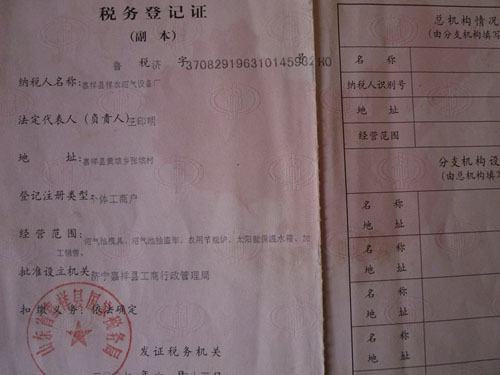 税务登记证
(副 本)
鲁 税 济 字
号
纳税人名称:嘉祥县祥农沼气设备厂
法定代表人(负责人)王印明
地 址:嘉祥县黄垓乡张垓村
登记注册类型:个体工商户
经营范围:沼气池模具、沼气池检查、农用节能炉、太阳能保温水箱、加
工销售。
批准设立机关 济宁嘉祥县工商行政管理局
扣缴义务:依法确定
山东省嘉祥县国家税务局
发证税务机关
总机构情况
(由分支机构填写
名 称
纳税人识别号
地 址
经营范围
分支机构设
(由总机构填写
名 称
地 址
名 称
地 址
名 称
地 址
名 称
地 址